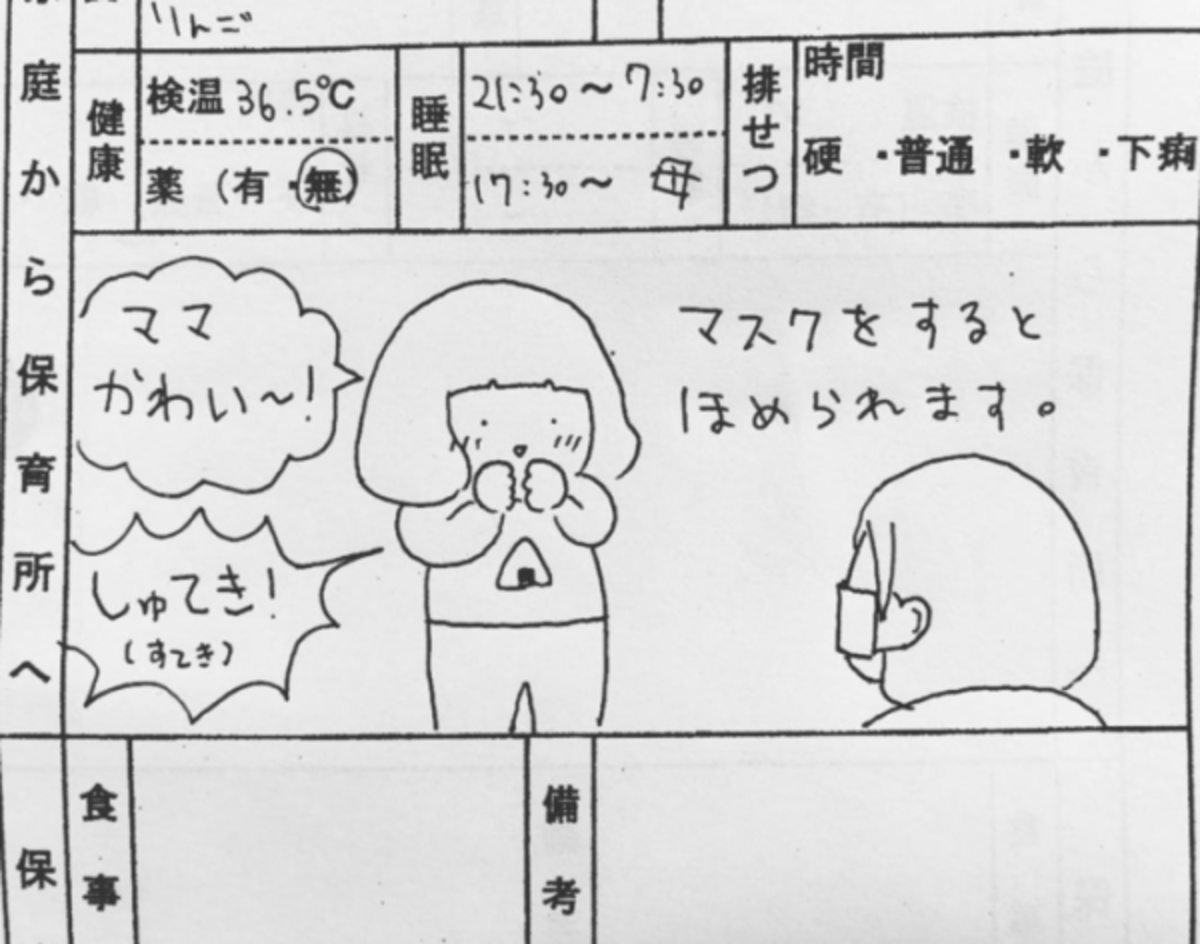 りんご
庭から保育所へ
健康
検温 36.5℃
薬 (有・無)
睡眠
21:30〜7:30
17:30〜 母
排せつ
時間
硬 ・普通 ・軟 ・下痢
ママ
かわい〜!
しゅてき!
(すてき)
マスクをすると
ほめられます。
保
食事
備考